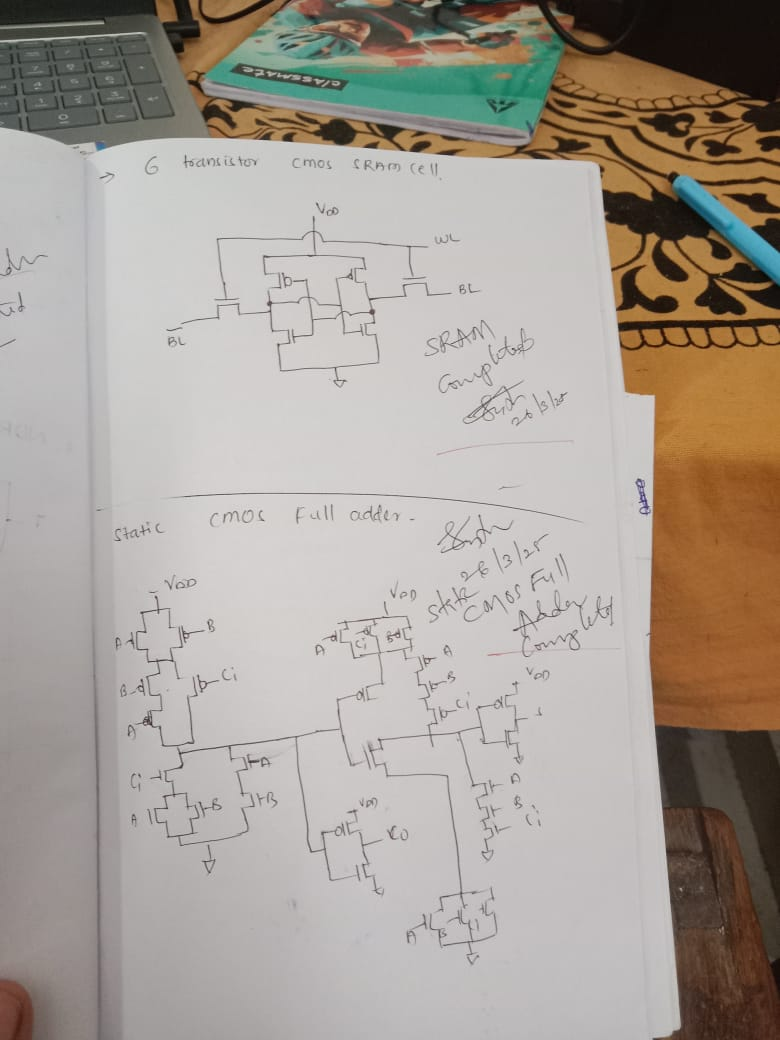 classmate
→ 6 transistor CMOS SRAM Cell.
VDD
WL
BL
B̅L̅
SRAM
Completed
26/3/25
Static CMOS Full adder.
26/3/25
Static
CMOS Full
Adder
Completed
VDD
A
B
B
Ci
A
Ci
A
B
A
B
VDD
A
Ci
B
A
B
Ci
VDD
CO
VDD
S
A
B
Ci
A
B
Ci